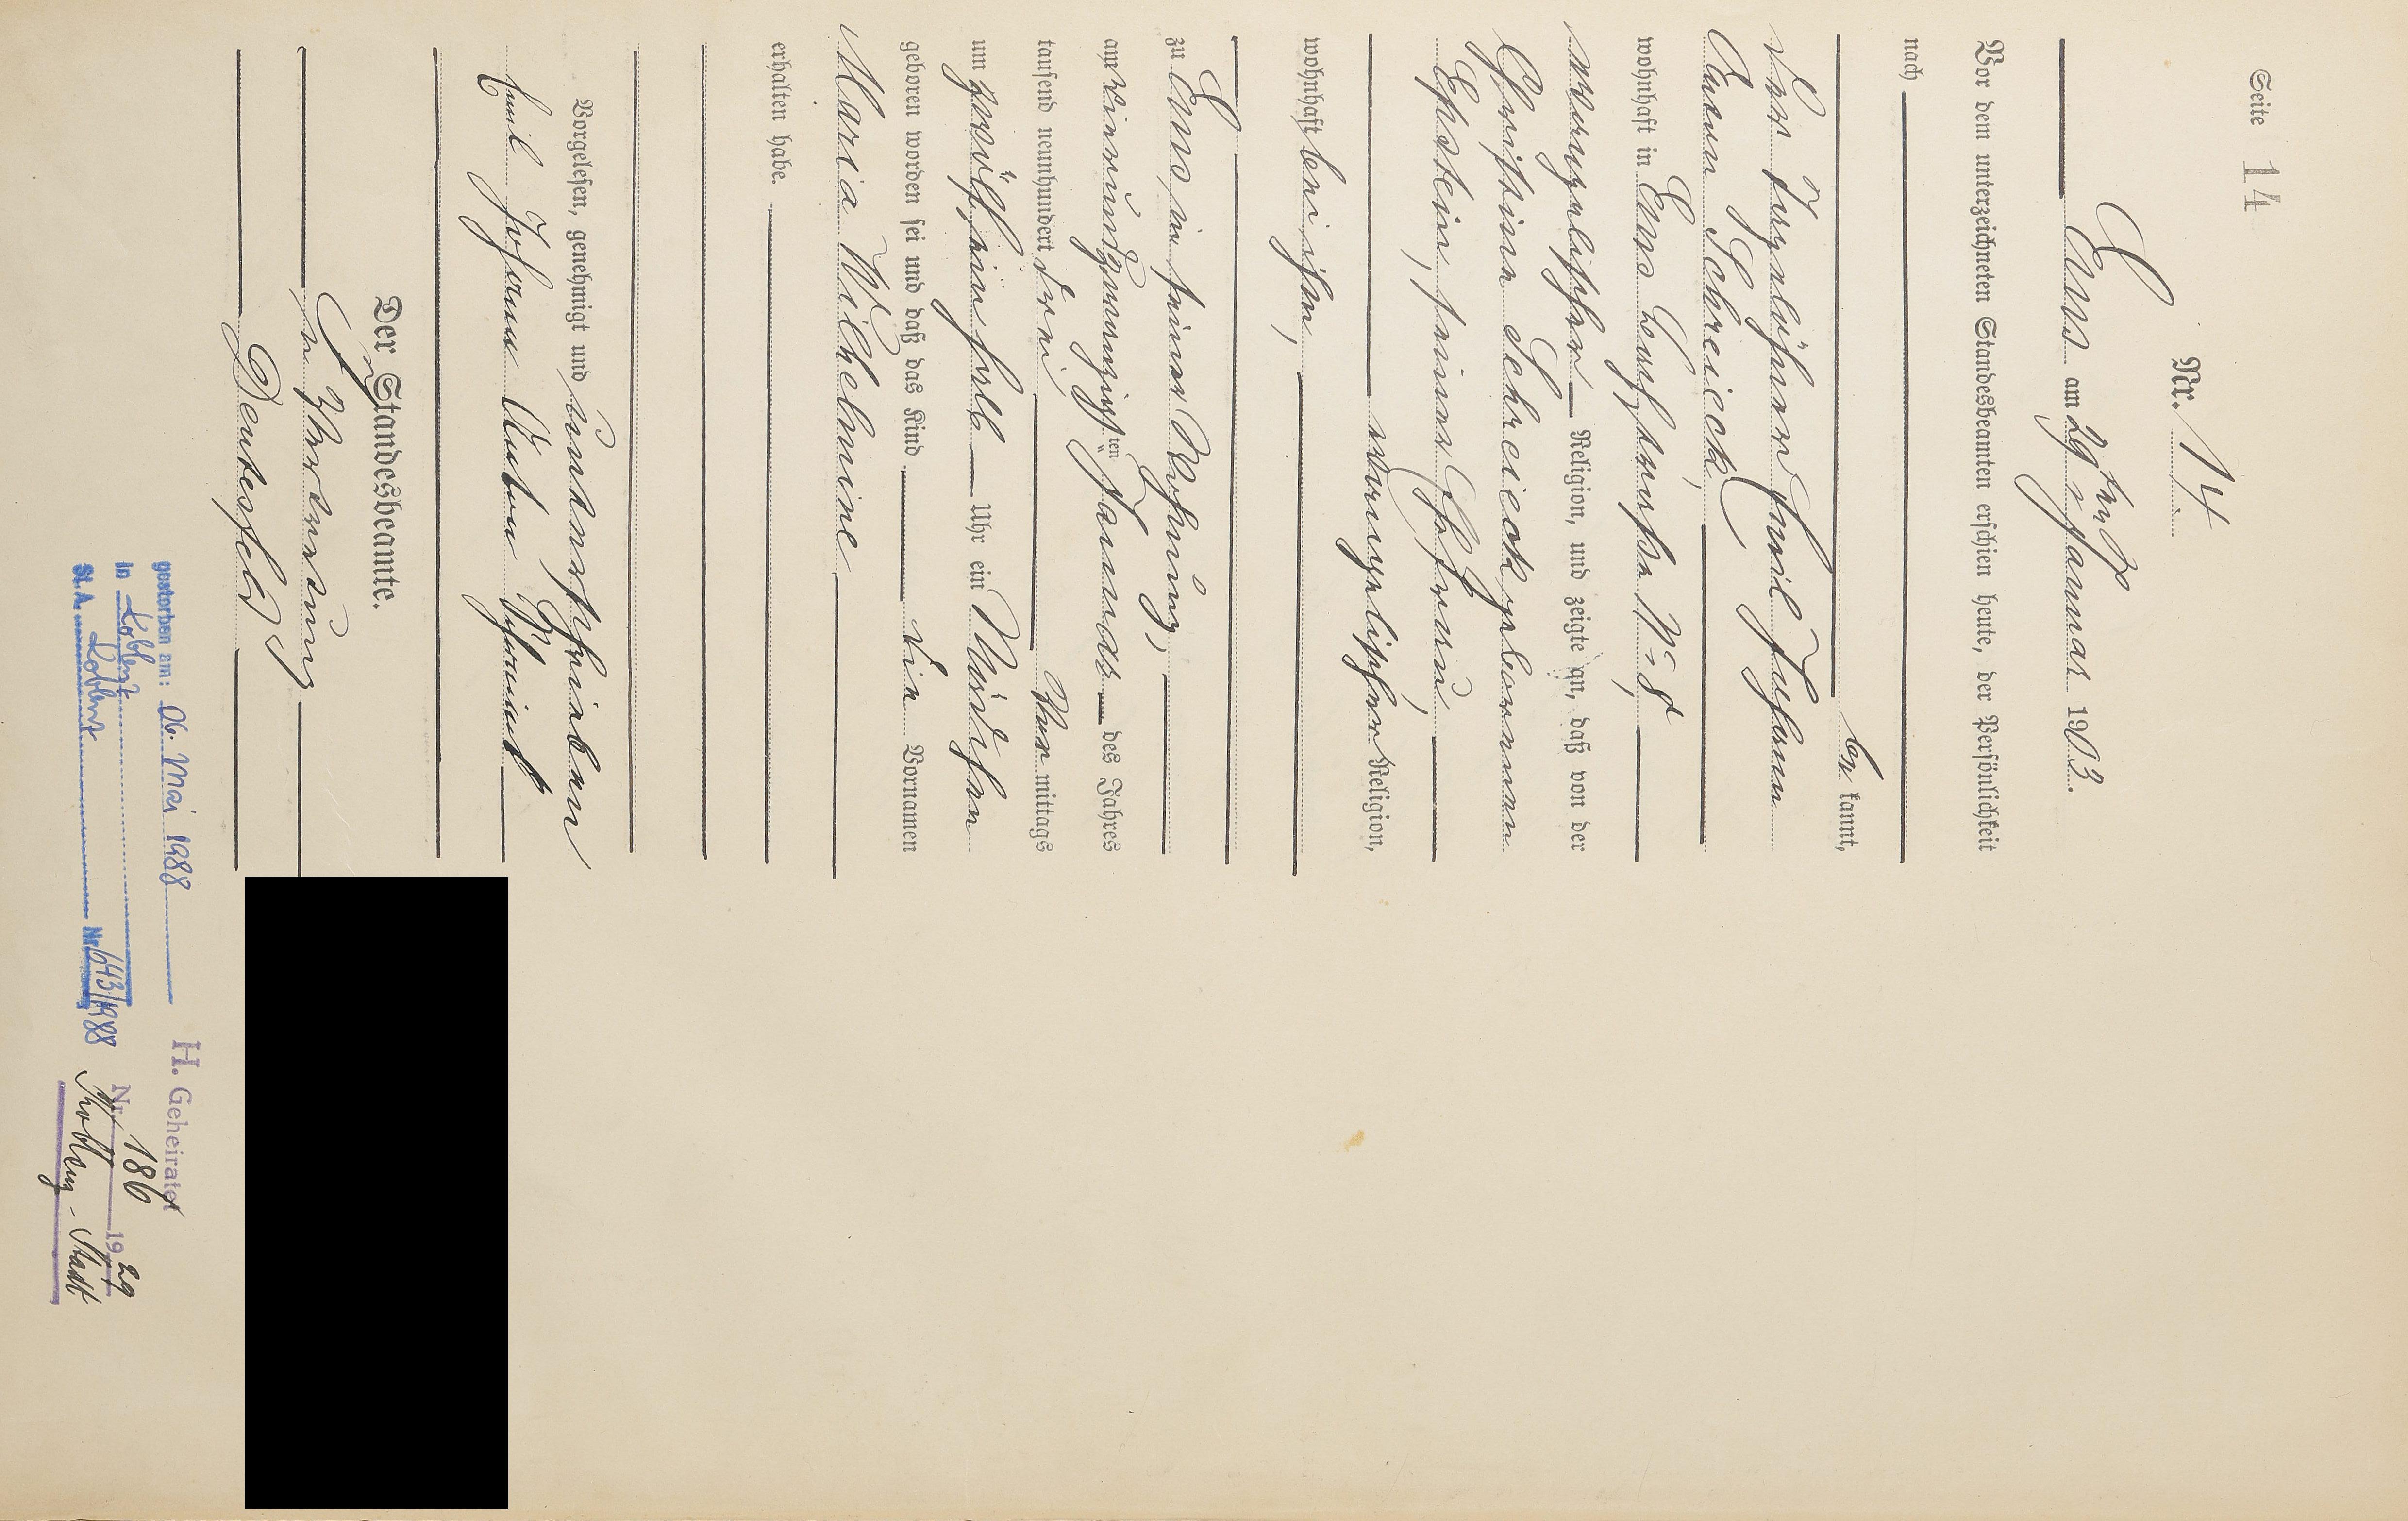 Seite 14
Nr. 14.
Ems am 29ten Januar 1903.
Vor dem unterzeichneten Standesbeamten erschien heute, der Persönlichkeit
nach
be kannt,
der Tagelöhner Emil Johann
Anton Schreieck,
wohnhaft in Ems, No 8,
evangelischer Religion, und zeigte an, daß von der
Christine Schreieck geborenen
Epstein, seiner Ehefrau,
evangelischer Religion,
wohnhaft bei ihm,
zu Ems, in seiner Wohnung,
am vierundzwanzigsten Januar des Jahres
tausend neunhundert drei, Vor mittags
um zwölf ein halb Uhr ein Mädchen
geboren worden sei und daß das Kind die Vornamen
Maria Wilhelmine
erhalten habe.
Vorgelesen, genehmigt und unterschrieben
Emil Johann Anton Schreieck
Der Standesbeamte.
In Vertretung
gestorben am: 06. Mai 1988
in Koblenz
St. A. Koblenz Nr. 643/1988
H. Geheiratet
Nr. 186 1929
Koblenz-Stadt